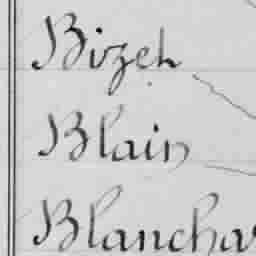 Bizeh
Blain
Blanchar